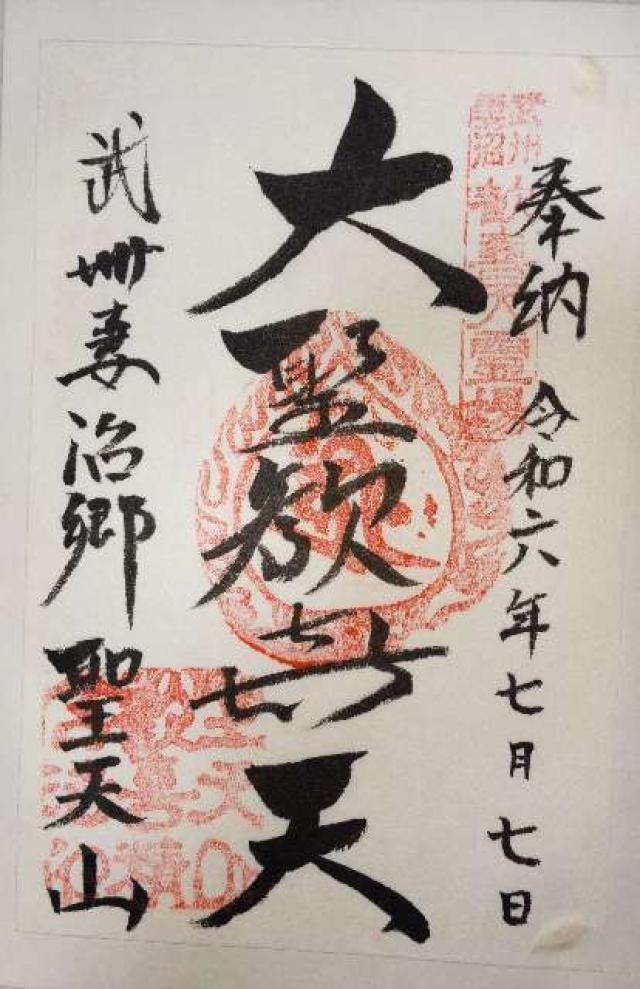 奉納 令和六年七月七日
大聖歓㐂天
武州妻沼郷 聖天山